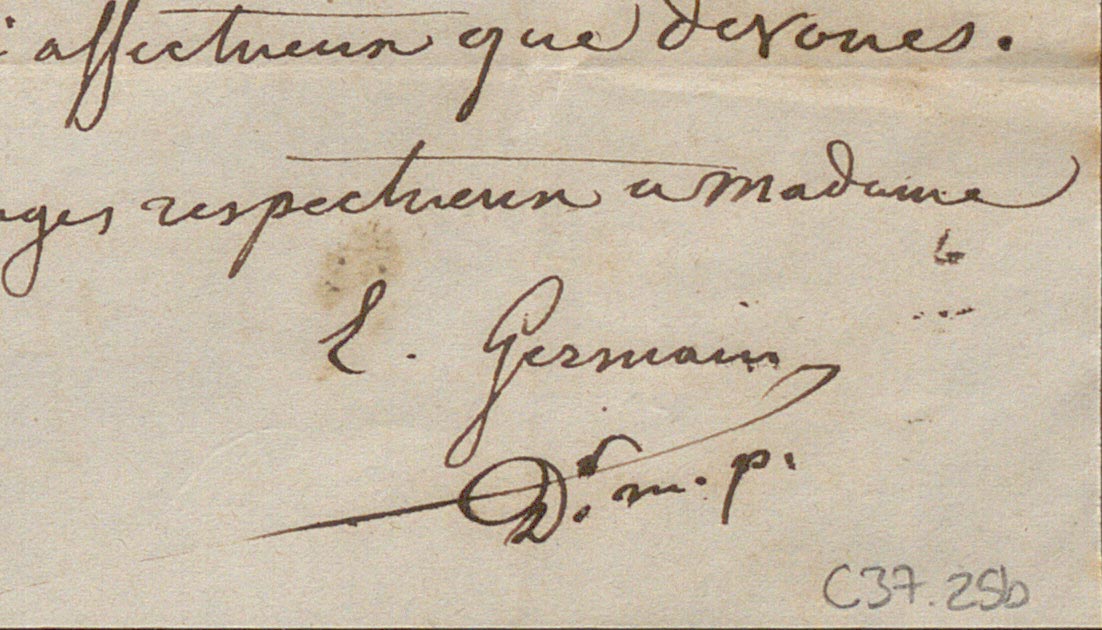 affectueux que devoués.
ages respectueux a madame
E. Germain
Dr. m. p.
C37.25b